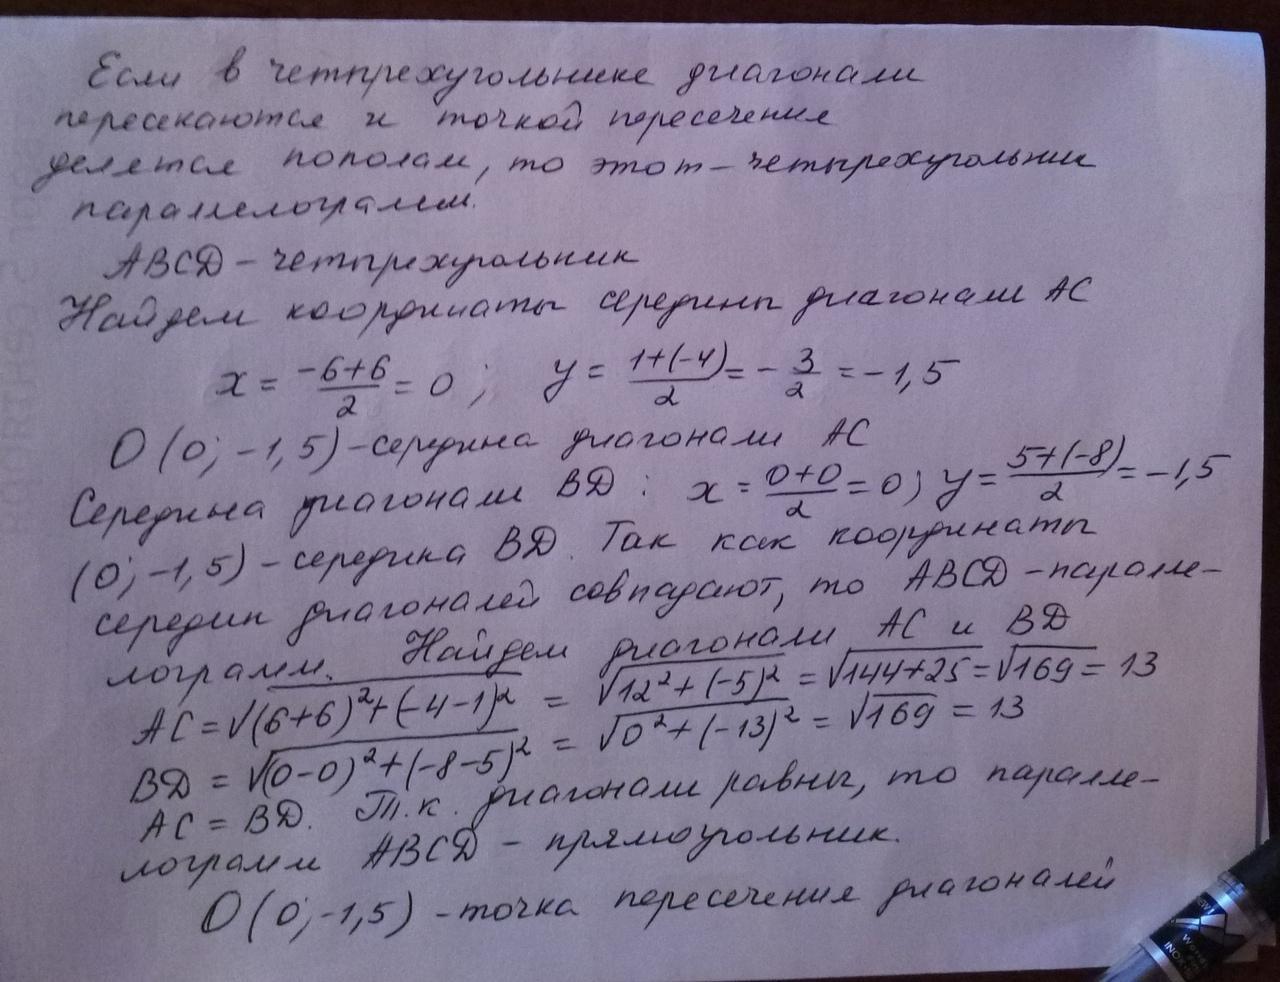 Если в четырехугольнике диагонали
пересекаются и точкой пересечения
делятся пополам, то этот – четырехугольник
параллелограмм.
ABCD – четырехугольник
Найдем координаты середины диагонали AC
x = (-6+6)/2 = 0; y = (1+(-4))/2 = -3/2 = -1,5
O (0; -1,5) – середина диагонали AC
Середина диагонали BD: x = (0+0)/2 = 0; y = (5+(-8))/2 = -1,5
(0; -1,5) – середина BD. Так как координаты
середин диагоналей совпадают, то ABCD – паралле-
лограмм. Найдем диагонали AC и BD
AC = √((6+6)²+(-4-1)²) = √(12²+(-5)²) = √(144+25) = √169 = 13
BD = √((0-0)²+(-8-5)²) = √(0²+(-13)²) = √169 = 13
AC = BD. Т.к. диагонали равны, то паралле-
лограмм ABCD – прямоугольник.
O (0; -1,5) – точка пересечения диагоналей